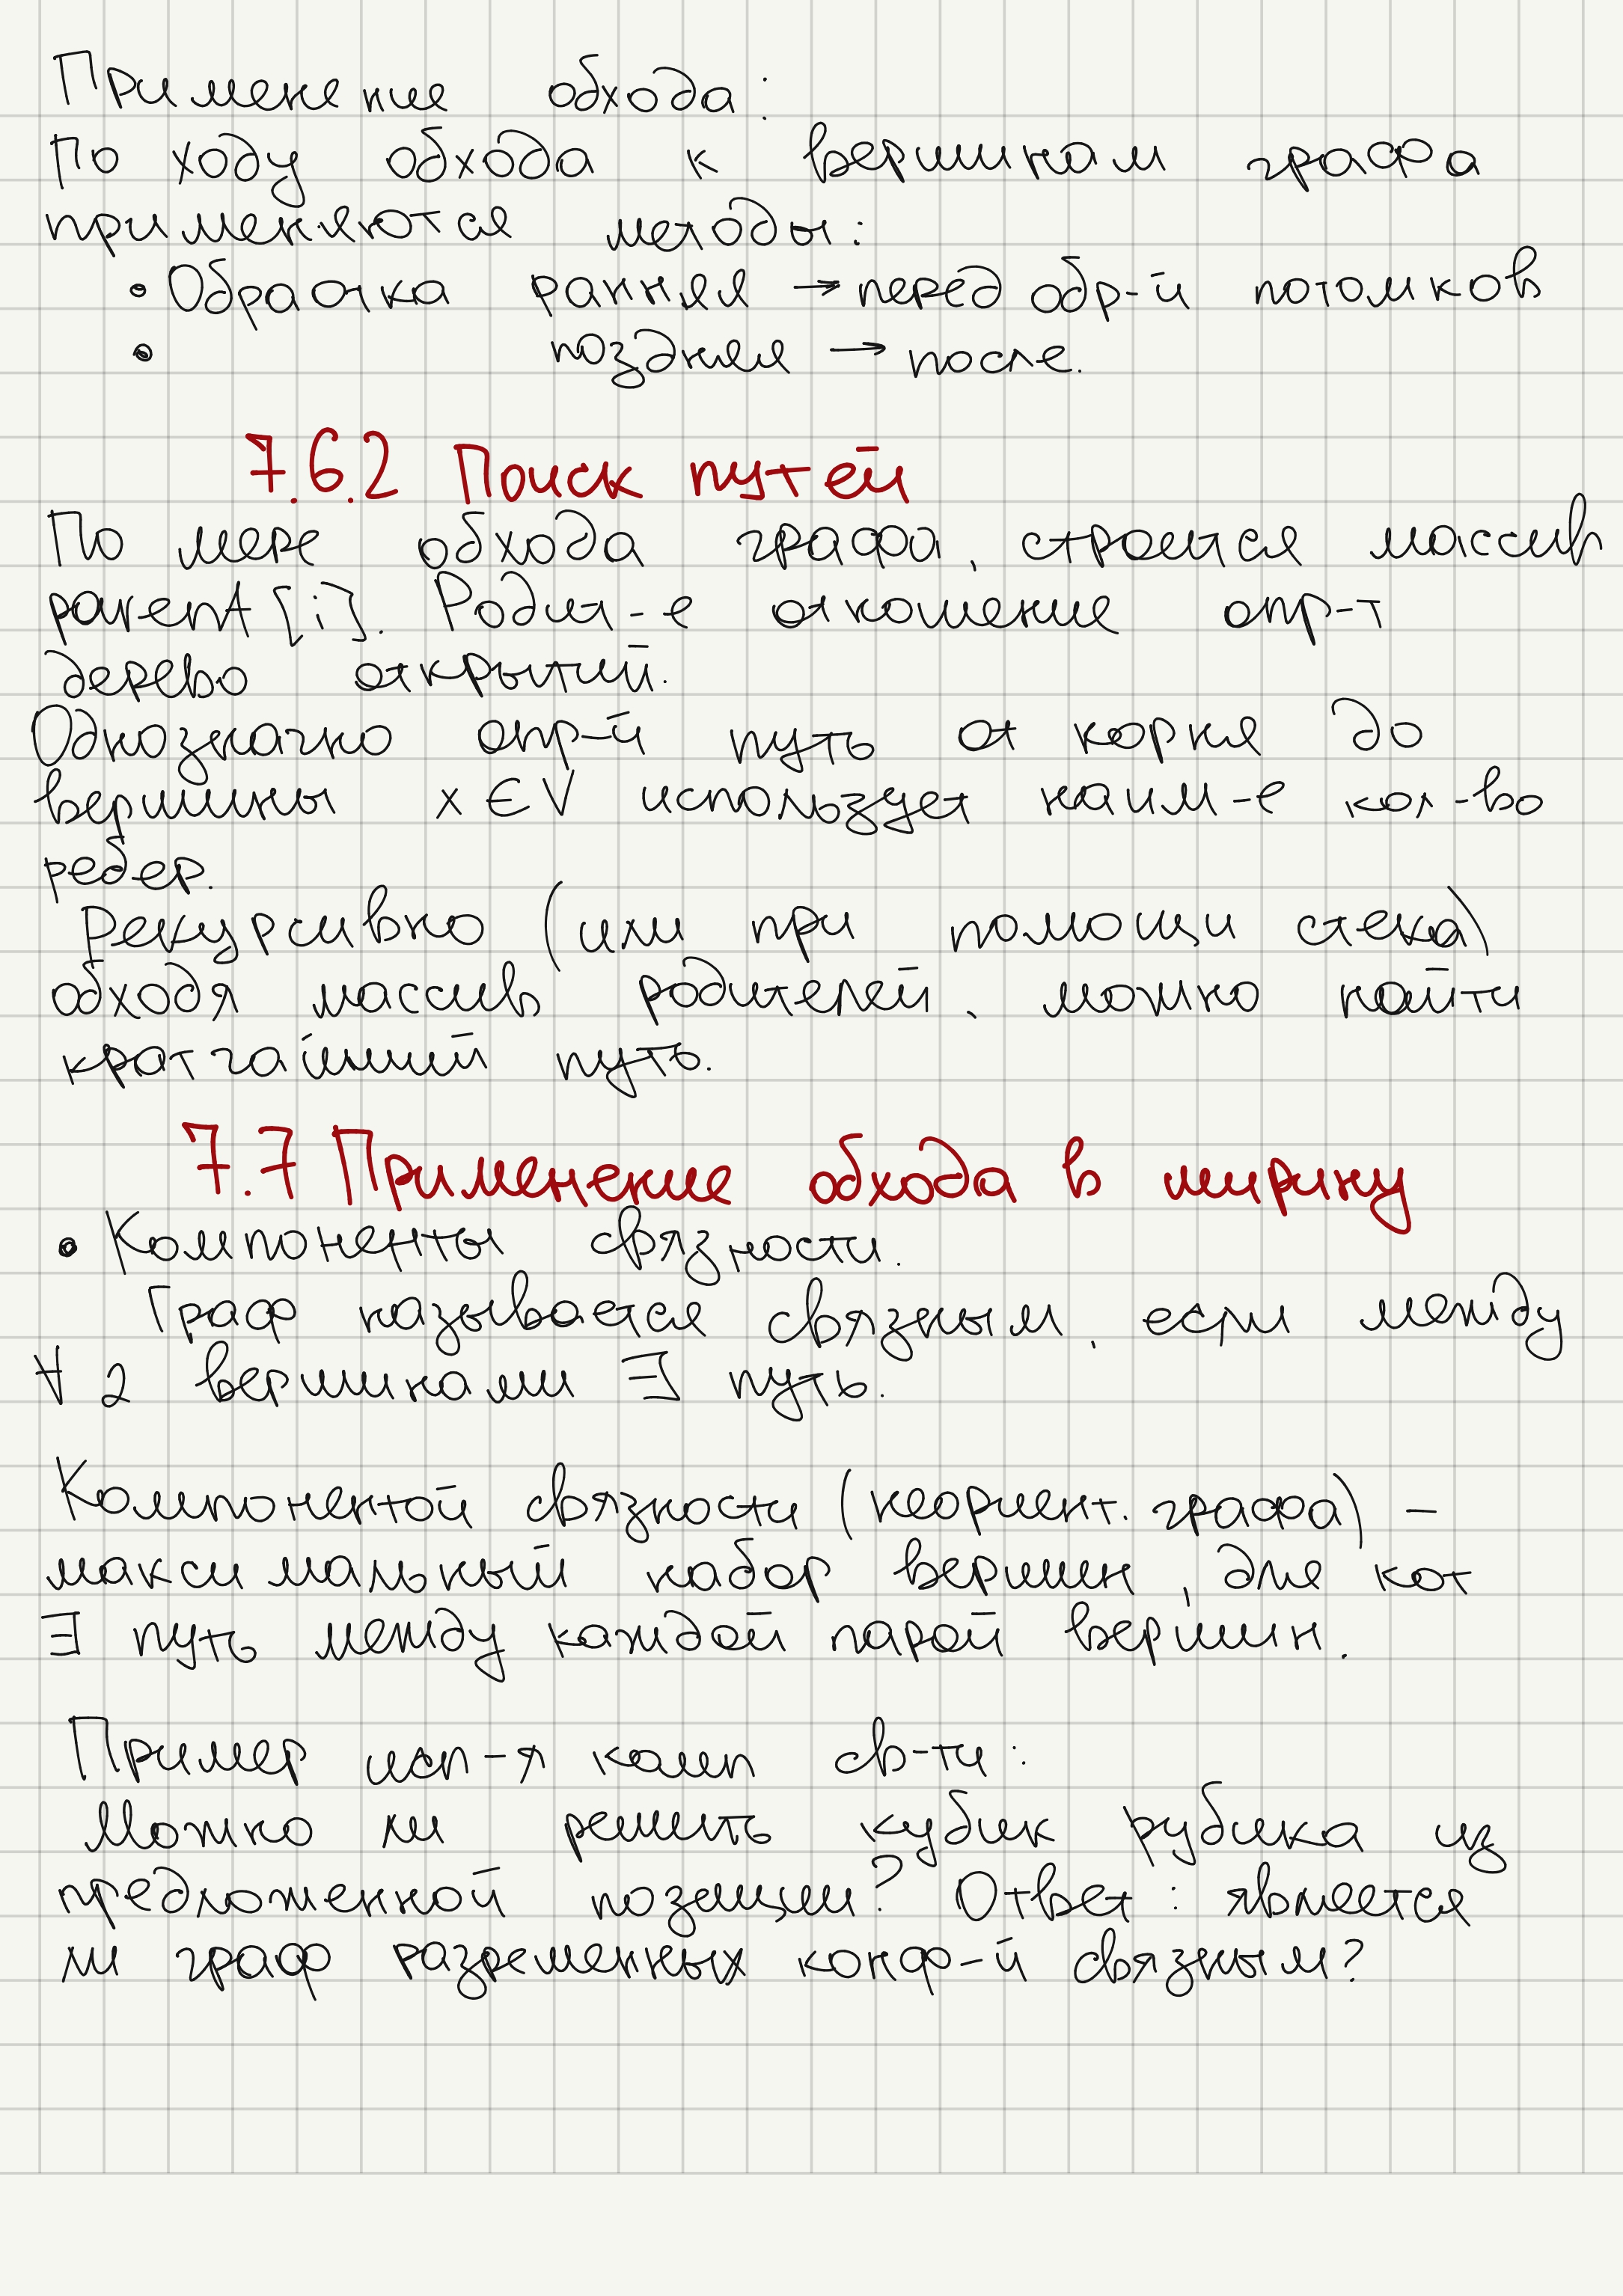 Применение обхода:
По ходу обхода к вершинам графа
применяются методы:
• Обраотка ранняя → перед обр-й потомков
• поздняя → после.
7.6.2 Поиск путей
По мере обхода графа, строится массив
parent [i]. Родит-е отношение опр-т
дерево открытий.
Однозначно опр-й путь от корня до
вершины x ∈ V использует наим-е кол-во
ребер.
Рекурсивно (или при помощи стека)
обходя массив родителей, можно найти
кратчайший путь.
7.7 Применение обхода в ширину
• Компоненты связности.
Граф называется связным, если между
∀ 2 вершинами ∃ путь.
Компонентой связности (неориент. графа) –
максимальный набор вершин, для кот
∃ путь между каждой парой вершин.
Пример исп-я комп св-ти:
Можно ли решить кубик рубика из
предложенной позации? Ответ: является
ли граф разременных конф-й связным?